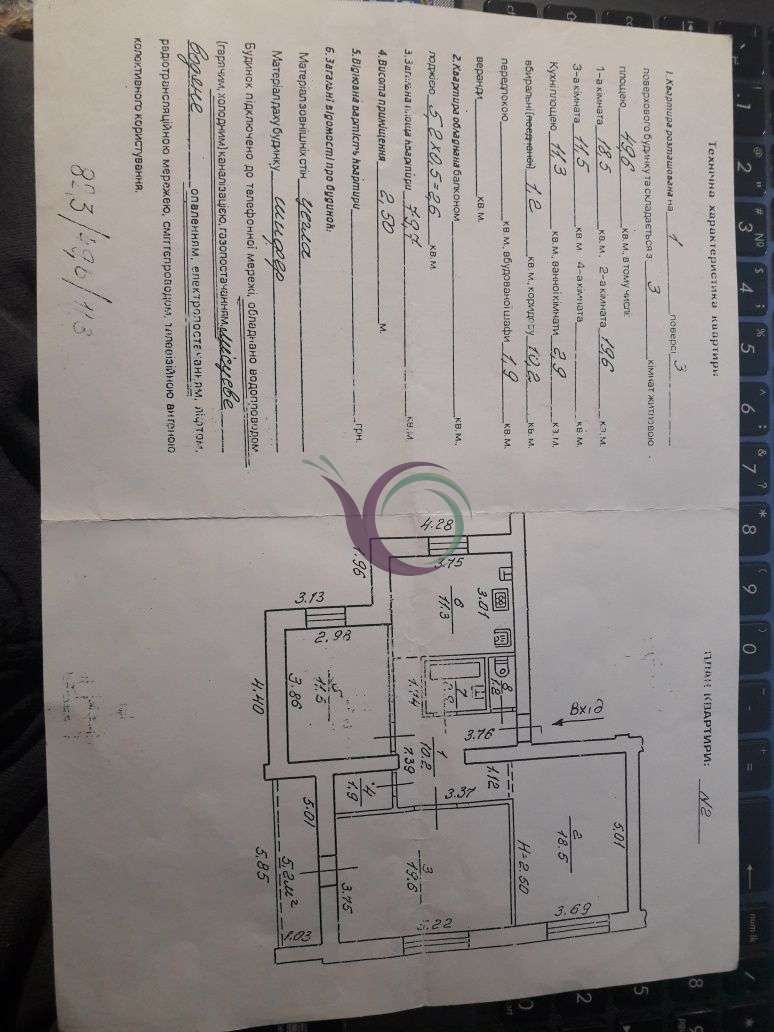 Технічна характеристика квартири
1. Квартира розташована на 1 поверсі 3
поверхового будинку та складається з 3 кімнат житловою
площею 49,6 кв.м, в тому числі:
1-а кімната 18,5 кв.м., 2-а кімната 19,6 кв.м.
3-а кімната 11,5 кв.м. 4-а кімната кв.м.
Кухні площею 11,3 кв.м, ванної кімнати 2,9 кв.м.
вбиральні (поєднаної) 1,2 кв.м, коридору 10,2 кв.м.
передпокою кв.м, вбудованої шафи 1,9 кв.м.
веранди кв.м.
2. Квартира обладнана балконом кв.м.,
лоджією 5,2х0,5=2,6 кв.м.
3. Загальна площа квартири 79,7 кв.м.
4. Висота приміщення 2,50 м.
5. Відновна вартість квартири грн.
6. Загальні відомості про будинок:
Матеріал зовнішніх стін цегла
Матеріал даху будинку шифер
Будинок підключено до телефонної мережі, обладнано водопроводом
(гарячим, холодним) каналізацією, газопостачанням, місцеве
опаленням, електропостачанням, ліфтом,
радіотрансляційною мережею, сміттєпроводом, телевізійною антеною
колективного користування.
79,7/49,6/11,3
ПЛАН КВАРТИРИ: №2
Вхід
4.28
3.75
1.96
3.01
6
11.3
3.13
2.98
3.86
5
11.5
4.40
1.74
7
2.9
8
1.2
3.76
1
10.2
7.39
1.12
3.37
4
1.9
5.01
5.85
5.2м²
1.03
3.75
3
19.6
5.22
H=2.50
2
18.5
5.01
3.69